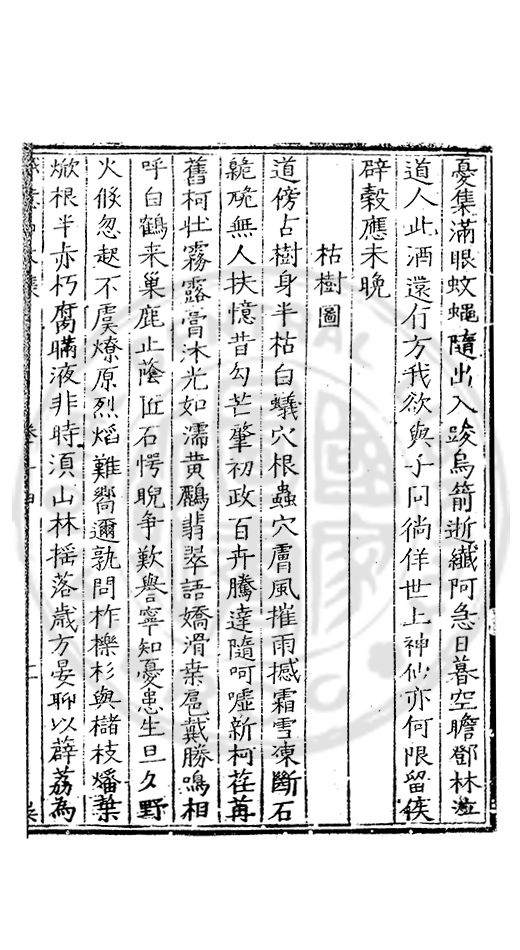 憂集滿眼蚊蠅隨出入踆烏箭逝纖阿急日暮空瞻鄧林
道人此酒還行方我欲與子問徜徉世上神仙亦何限留侯
辟穀應未晚
枯樹圖
道傍占樹身半枯白蟻穴根蟲穴膚風摧雨撼霜雪凍斷石
䠥跪無人扶憶昔勾芒肇初政百卉騰達隨呵噓新柯荏苒
舊柯壯霧露膏沐光如濡黄鸝翡翠語嬌滑桒扈戴勝鳴相
呼白鶴来巢鹿止蔭匠石愕睨争歎譽寧知憂患生旦久野
火倐忽起不虞燎原烈熖難嚮邇孰問柞櫟杉與櫧枝燔葉
焮根半赤朽腐瞞液非時須山林揺落歲方晏聊以薜荔為